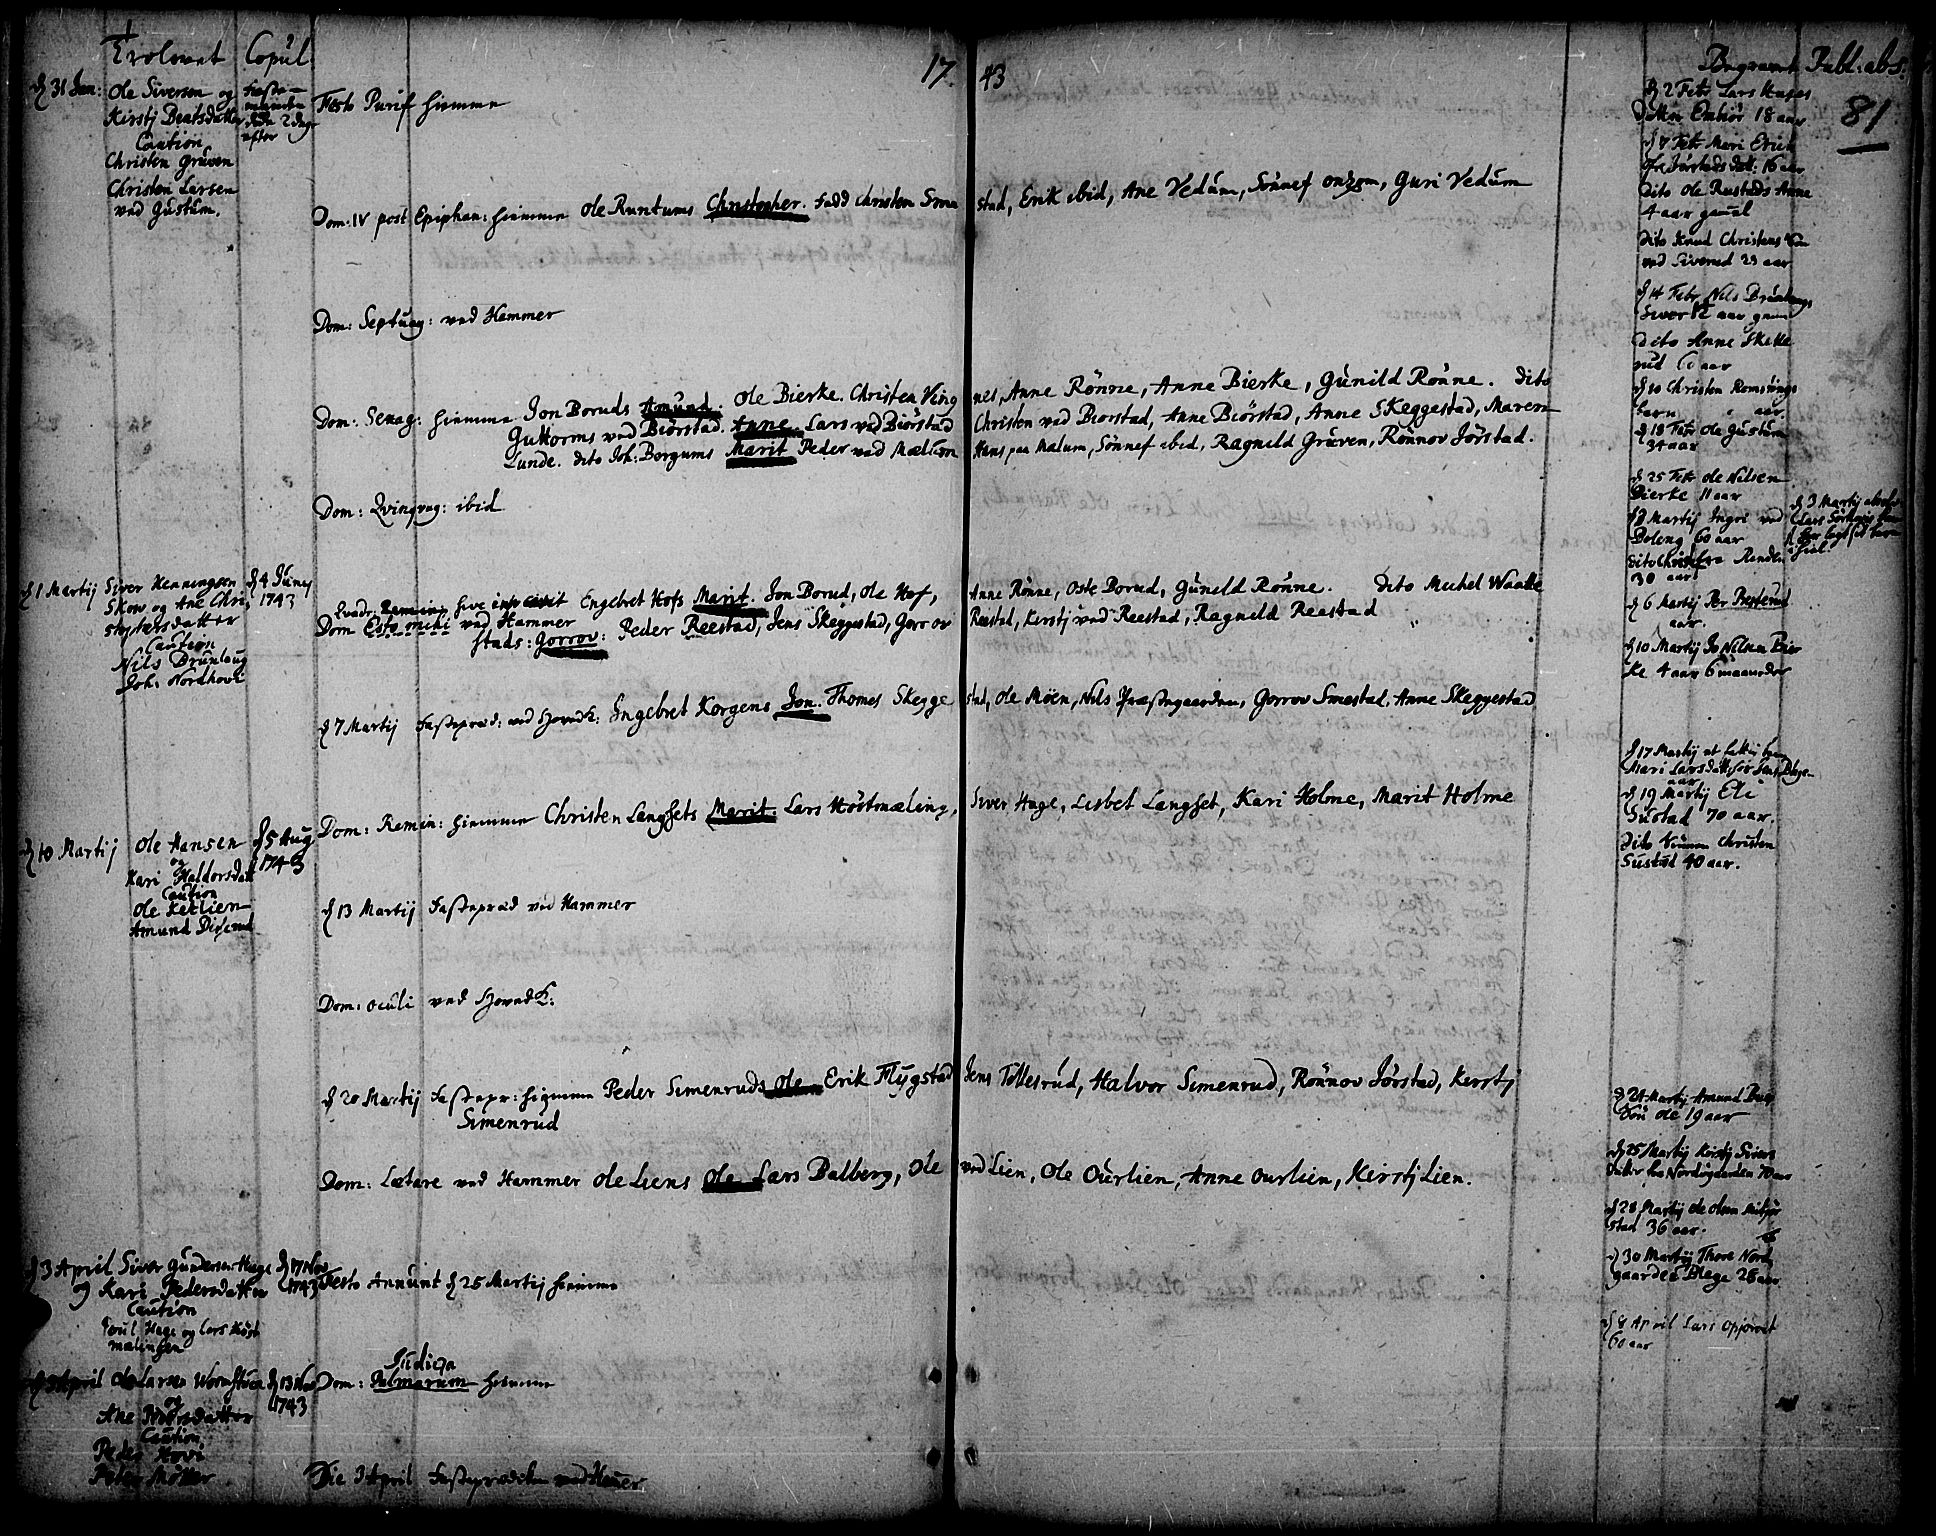 Trolovet Copul. 17 43 Begravet Publ. abs.
81
d 31 Jan: Ole Siversen og
Kirstj Bentsdatter
Caution
Christen Gruven
Christen Larsen
ved Gustum.
Fæste-
manden
døde 2 dage
efter
Festo Purif hiemme
Dom: IV post Epiphan: hiemme Ole Runtums Christopher. Fadd Christen Smestad, Erik ibid, Ane Vedum, Sönnef, Guri Vedum
Dom: Septuag: ved Hammer
Dom: Sexag: hiemme Jon Boruds Amund. Ole Bierke. Christen Vingnes, Anne Rönne, Anne Bierke, Gunild Rönne. Dito
Guttorms ved Biörstad. Anne. Lars ved Biörstad Christen ved Biorstad, Anne Biörstad, Anne Skeggestad, Maren
Lunde. Dito Joh: Borgums Marit Peder ved Mælum Hans paa Malum, Sönnef ibid, Ragnild Gruven, Rönnov Jörstad.
Dom: Qvinqvag: ibid
d 1 Martij Siver Henningsen
Skow og Ane Chri
stophersdatter
Caution
Nils Brunlaug
Joh: Nordhovi
d 4 Junij
1743
Engebret Hofs Marit. Jon Borud, Ole Hof, Anne Rönne, Oste Borud, Gunild Rönne. Dito Michel Waalle
Dom Esto mihi ved Hammer
stads: Gorrov: Peder Reestad, Jens Skeggestad, Gorrov Reestad, Kirstj ved Reestad, Ragnild Reestad
d 7 Martij Fastepræd: ved HovedK: Ingebret Korgens Jon. Thomes Skeggestad, Ole Möen, Nils Præstegaarden, Gorrov Smestad, Anne Skeggestad
Dom: Remin: hiemme Christen Langsets Marit. Lars Höstmæling, Siver Hage, Lisbet Langset, Kari Holme, Marit Holme
d 10 Martij Ole Hansen
og
Kari Haldorsdatt
Caution
Ole Ketlien
Amund Diserud
d 5 Aug
1743
d 13 Martij Fastepræd ved Hammer
Dom: Oculi ved HovedK:
d 20 Martij Fastepr: hiemme Peder Simenruds Ole Erik Flygstad Jens Tollesrud, Halvor Simenrud, Rönnov Jörstad, Kirstj
Simenrud
Dom: Lætare ved Hammer Ole Liens Ole Lars Balberg, Ole ved Lien, Ole Ourlien, Anne Ourlien, Kirstj Lien.
d 3 April Siver Gundersen Hage
og Kari Pedersdatter
Caution
Poul Hage og Lars Höst
mælingen
d 17 Nov
1743
Festo Annunt d 25 Martij hiemme
d 3 April Ole Larsen
og
Ane
Caution
Peder Hovi
Peter Möller
d 13 Nov
1743
Judica
Dom: Palmarum hiemme
Die 3 April Fasteprædiken ved Hamer
d 2 Febr Lars Hages
Datter 18 aar
d 7 Febr Mari Erich
16 aar
Dito Ole Rustads Anne
4 aar gamel
Dito Knud Christens Sön
ved Siverud 23 aar
d 14 Febr Nils Brunlaugs
Siver 12 aar
Dito Anne Skelle
rud 60 aar
Christen Romsings
barn aar.
d 18 Febr Ole Gustum
34 aar
d 25 Febr Ole Nilsen
Bierke 11 aar
Martij Ingri ved
Boleng 60 aar
30 aar
d 6 Martij Per
aar.
d 10 Martij Jo Nilsen Bier
ke 4 aar 6 maaneder
d 3 Martij
d 17 Martij et
Mari Larsdatter
d 19 Martij Ole
Sustad 70 aar.
Dito Christen
Sustad 40 aar.
d 24 Martij Amund
Sön Ole 19 aar
d 25 Martij Kirstj Sivers
datter fra 70 aar
d 28 Martij Ole Olsen
stad 36 aar.
d 30 Martij Thore Nord
gaarden Blege 26 aar
d 8 April Lars
60 aar